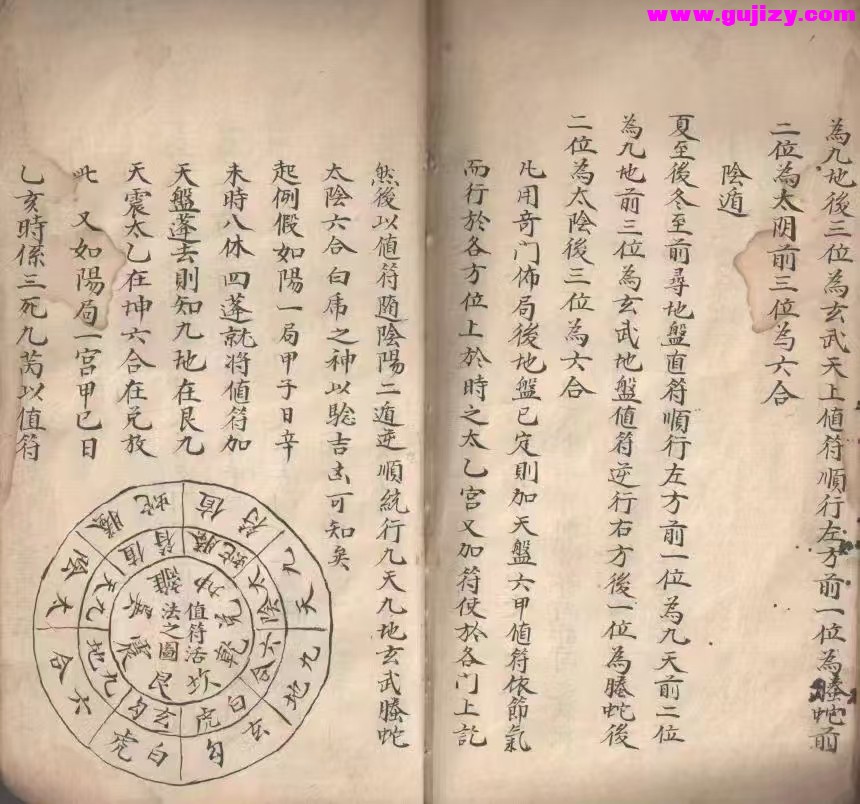 www.gujizy.com
為九地後三位為玄武天上值符順行左方前一位為螣蛇前
二位為太阴前三位為六合
陰遁
夏至後冬至前尋地盤直符順行左方前一位為九天前二位
為九地前三位為玄武地盤值符逆行右方後一位為螣蛇後
二位為太陰後三位為六合
凡用奇门佈局後地盤已定則加天盤六甲值符依節氣
而行於各方位上於時之太乙宮又加符使於各门上訖
然後以值符随陰陽二遁逆順統行九天九地玄武螣蛇
太陰六合白虎之神以驗吉凶可知矣
起例假如陽一局甲子日辛
未時八休四蓬就將值符加
天盤蓬去則知九地在艮九
天震太乙在坤六合在兌放
此 又如陽局一宮甲己日
乙亥時係三死九芮以值符
值符 螣蛇 太陰 六合 白虎 玄勾 九地 九天
值符 螣蛇 太陰 六合 白虎 玄勾 九地 九天
離 坤 兌 乾 坎 艮 震 巽
值符活
法之圖